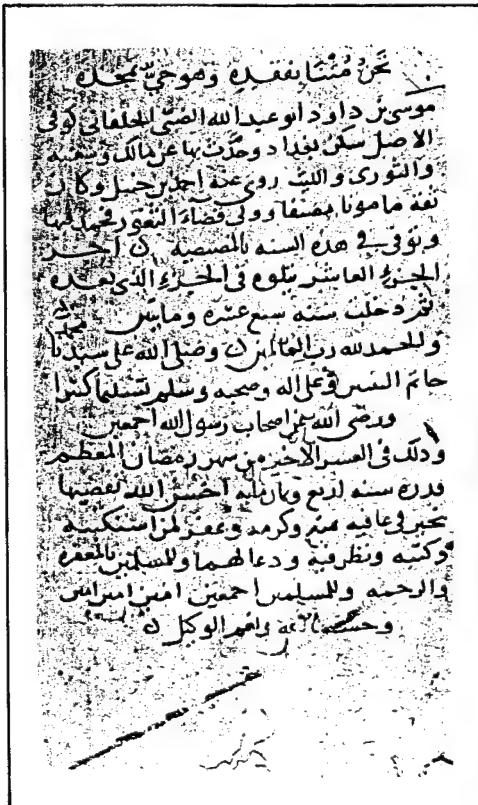 نحن متنا بفقده وهو حي بمجده
موسى بن داود ابو عبد الله الضبي الخلقاني كوفي
الاصل سكن بغداد وحدث بها عن مالك وشعبة
والثوري والليث روى عنه احمد بن حنبل وكان
ثقة مامونا مصنفا وولي قضاء الثغور فحمد فيها
وتوفي في هذه السنه بالمصيصه ن اخر
الجزء العاشر يتلوه في الجزء الذي بعده
ثم دخلت سنه سبع عشره ومايتين
والحمد لله رب العالمين ن وصلى الله على سيدنا
خاتم النبيين وعلى اله وصحبه وسلم تسليما كثيرا
ورضي الله عن اصحاب رسول الله اجمعين
وذلك في العشر الاخر من شهر رمضان المعظم
قدره سنه اربع وثمان مايه احسن الله تقضيها
بخير في عافيه بمنه وكرمه وغفر لمن استكتبه
وكتبه ونظر فيه ودعا لهما وللمسلمين بالمغفره
والرحمه وللمسلمين اجمعين امين امين امين
وحسبنا الله ونعم الوكيل ن